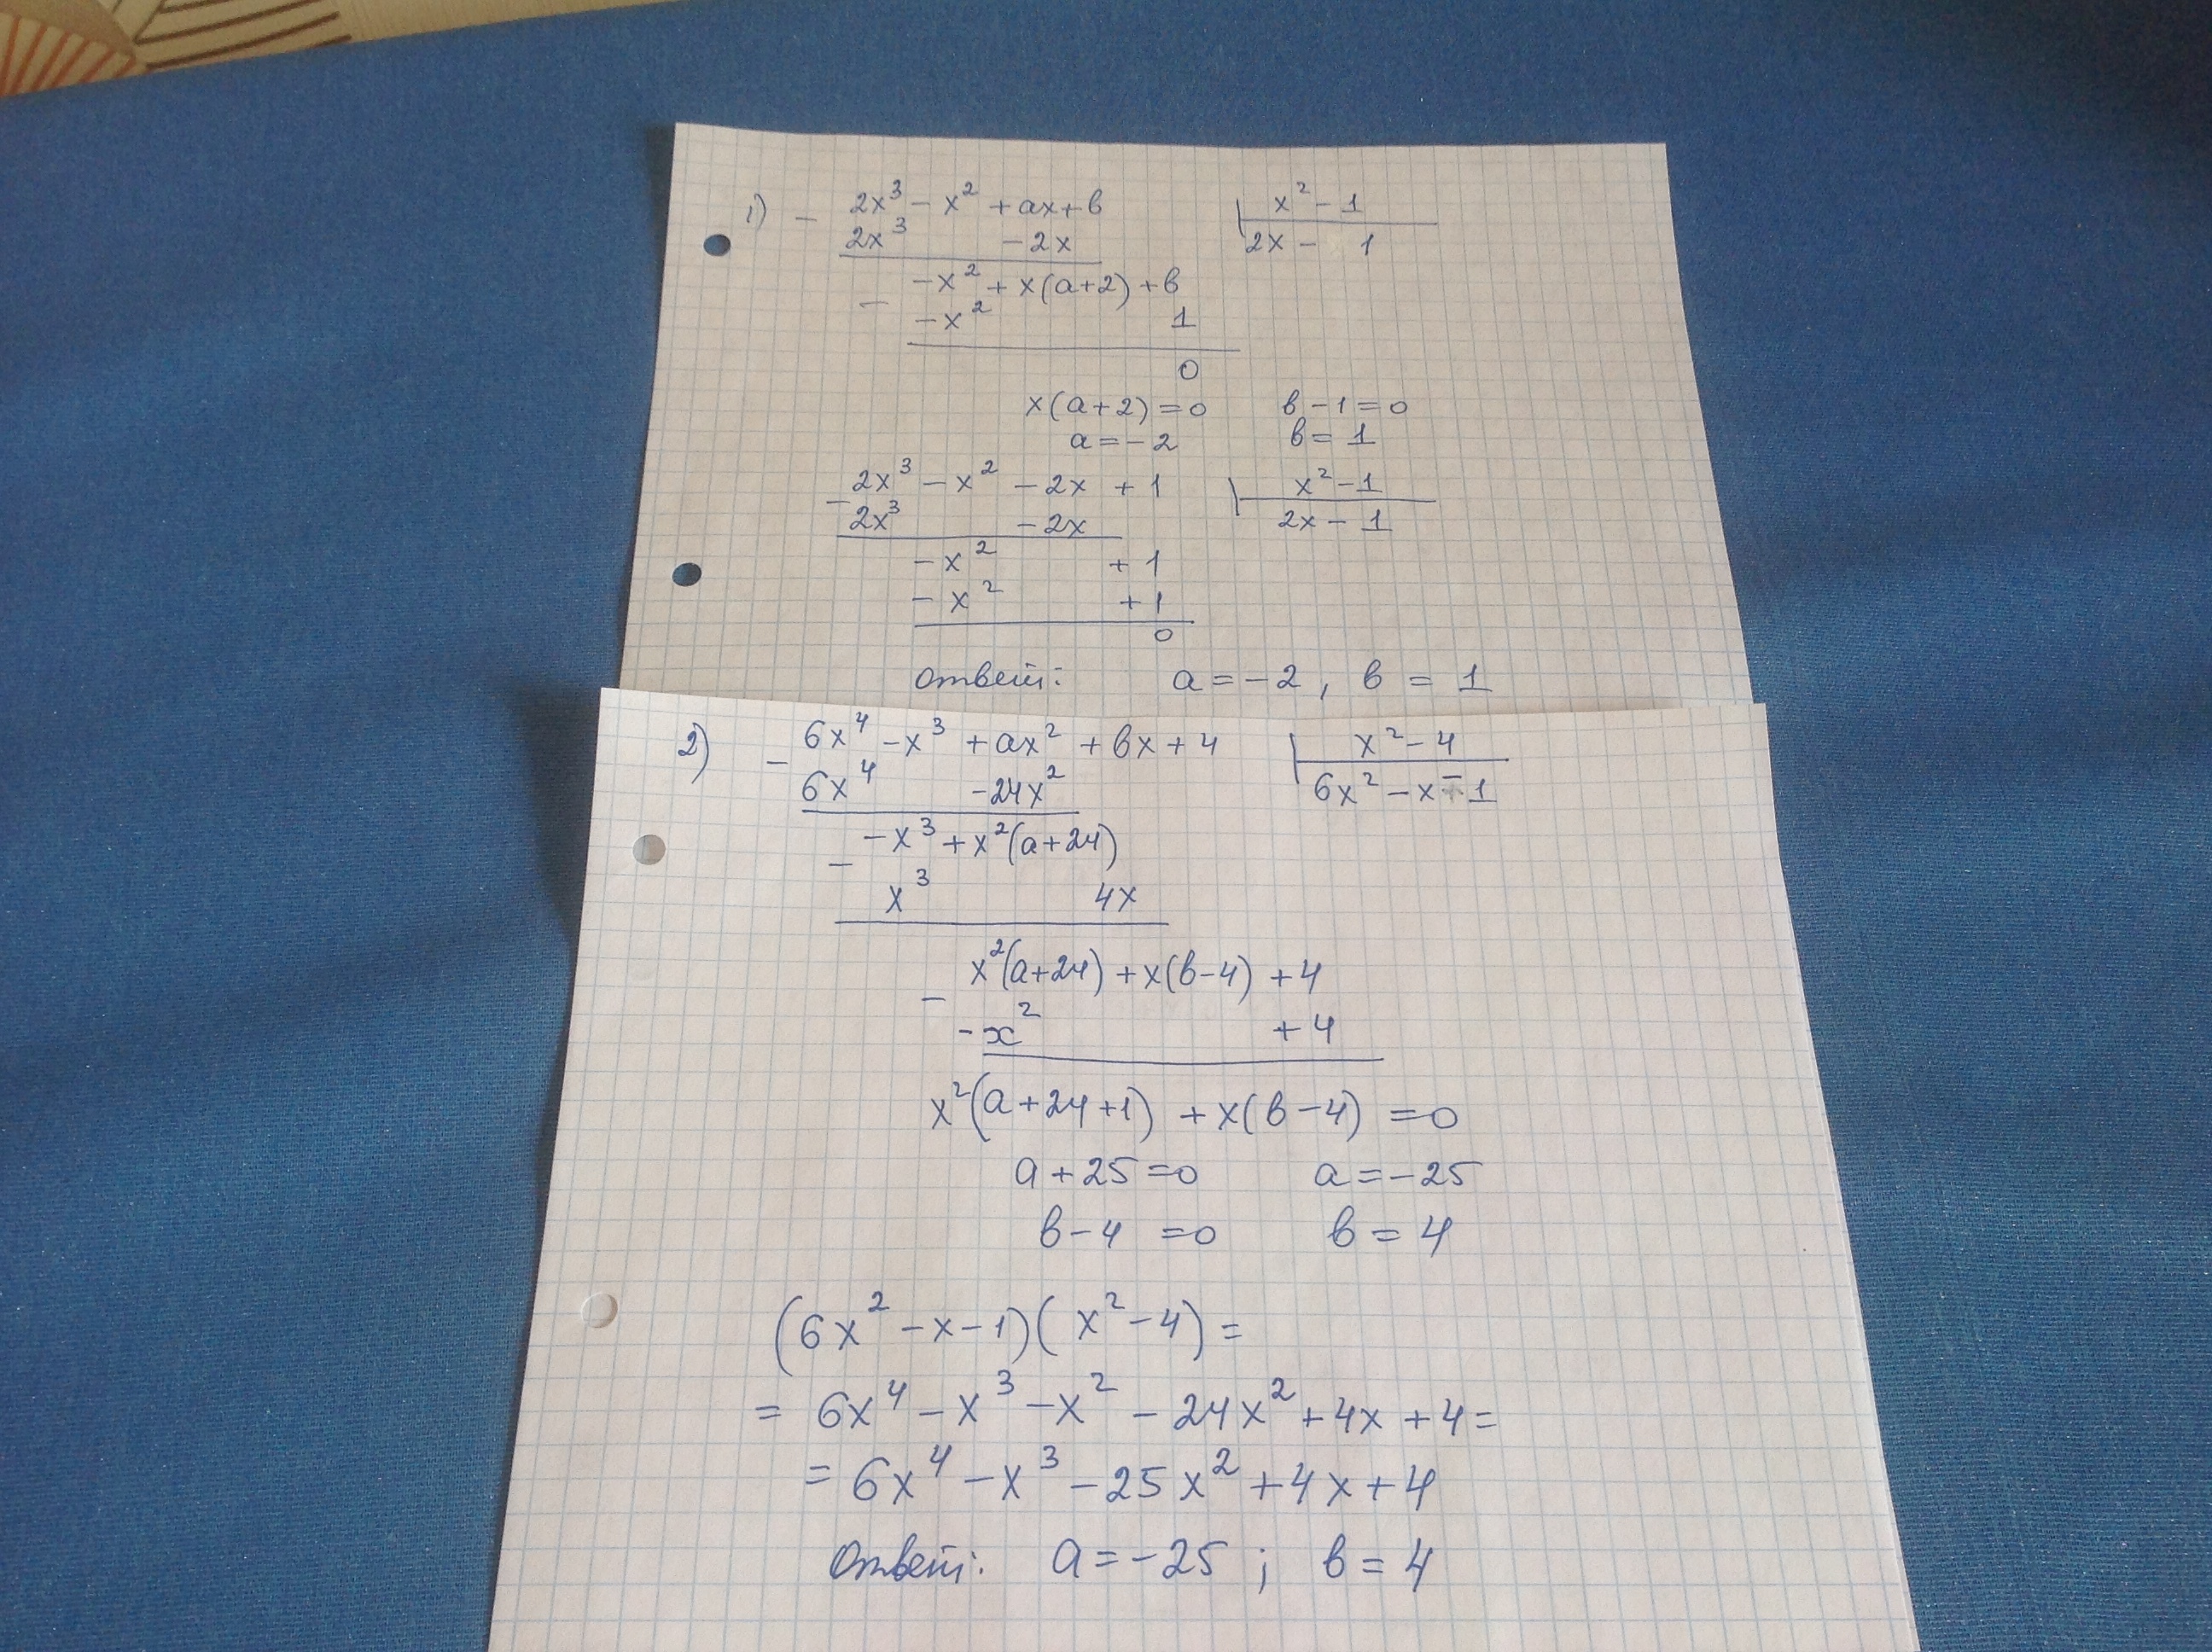 1) - 2x³ - x² + ax + b | x² - 1
2x³ - 2x | 2x - 1
- -x² + x(a+2) + b
-x² 1
0
x(a+2) = 0 b - 1 = 0
a = -2 b = 1
- 2x³ - x² - 2x + 1 | x² - 1
2x³ - 2x | 2x - 1
-x² + 1
-x² + 1
0
Ответ: a = -2, b = 1
2) - 6x⁴ - x³ + ax² + bx + 4 | x² - 4
6x⁴ - 24x² | 6x² - x - 1
- -x³ + x²(a+24)
x³ 4x
- x²(a+24) + x(b-4) + 4
-x² + 4
x²(a+24+1) + x(b-4) = 0
a + 25 = 0 a = -25
b - 4 = 0 b = 4
(6x² - x - 1)(x² - 4) =
= 6x⁴ - x³ - x² - 24x² + 4x + 4 =
= 6x⁴ - x³ - 25x² + 4x + 4
Ответ: a = -25; b = 4